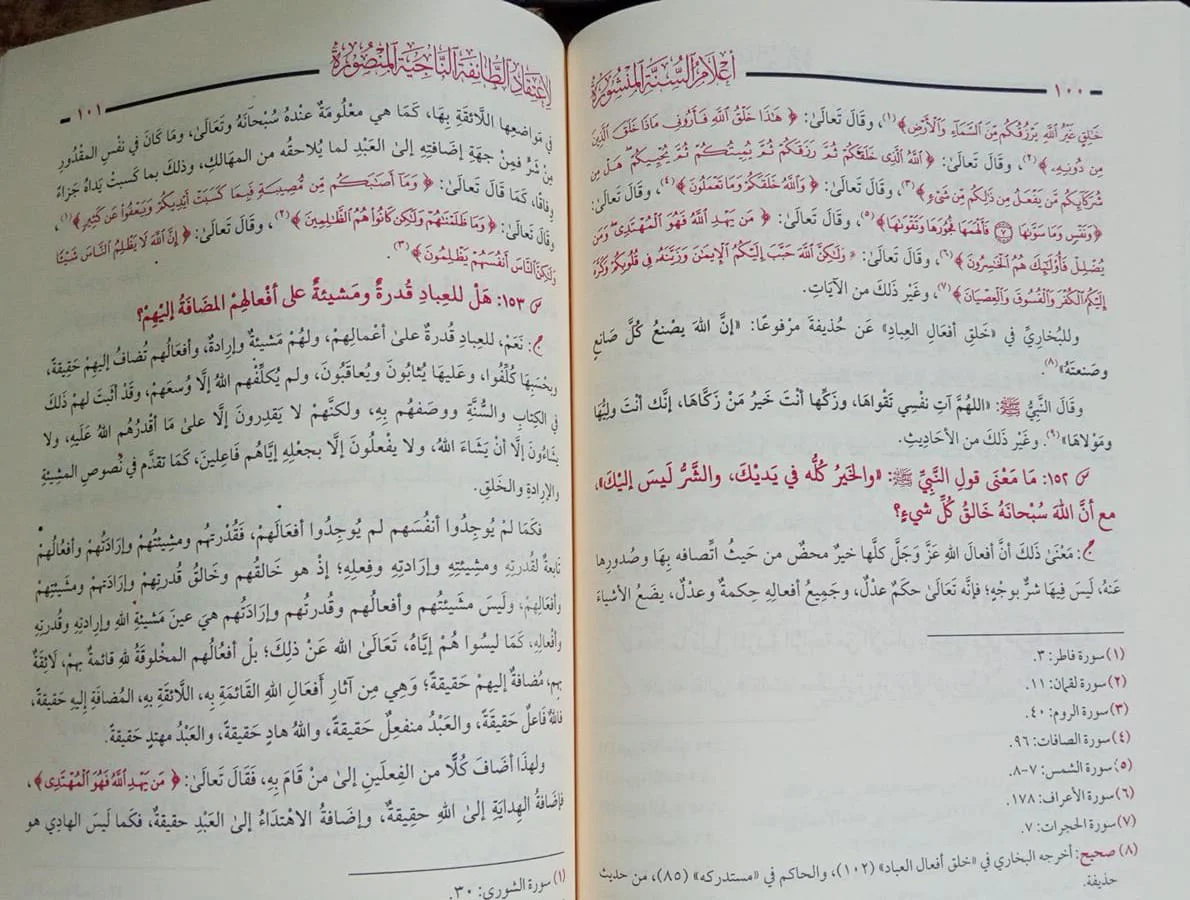 أعلام السنة المنشورة
١٠٠
خَلِقٍ غَيْرُ اللَّهِ يَرْزُقُكُم مِّنَ السَّمَآءِ وَالْأَرْضِ﴾(١)، وقَالَ تَعالَىٰ: ﴿ هَٰذَا خَلْقُ اللَّهِ فَأَرُونِي مَاذَا خَلَقَ الَّذِينَ
مِن دُونِهِۦ ﴾(٢)، وقَالَ تَعالَىٰ: ﴿ اللَّهُ الَّذِي خَلَقَكُمْ ثُمَّ رَزَقَكُمْ ثُمَّ يُمِيتُكُمْ ثُمَّ يُحْيِيكُمْ هَلْ مِن
شُرَكَآئِكُم مَّن يَفْعَلُ مِن ذَٰلِكُم مِّن شَيْءٍ﴾(٣)، وقَالَ تَعالَىٰ: ﴿ وَاللَّهُ خَلَقَكُمْ وَمَا تَعْمَلُونَ ﴾(٤)، وقَالَ تَعَالَىٰ:
﴿وَنَفْسٍ وَمَا سَوَّىٰهَا ٧ فَأَلْهَمَهَا فُجُورَهَا وَتَقْوَىٰهَا﴾(٥)، وقَالَ تَعالَىٰ: ﴿ مَن يَهْدِ اللَّهُ فَهُوَ الْمُهْتَدِي وَمَن
يُضْلِلْ فَأُولَٰٓئِكَ هُمُ الْخَٰسِرُونَ ﴾(٦)، وقَالَ تَعالَىٰ: ﴿ وَلَٰكِنَّ اللَّهَ حَبَّبَ إِلَيْكُمُ الْإِيمَٰنَ وَزَيَّنَهُۥ فِي قُلُوبِكُمْ وَكَرَّهَ
إِلَيْكُمُ الْكُفْرَ وَالْفُسُوقَ وَالْعِصْيَانَ﴾(٧)، وغَيْر ذَلكَ من الآيَاتِ.
وللبُخاريِّ في «خَلقِ أفعَال العِبادِ» عَن حُذيفةَ مرْفوعًا: «إنَّ اللهَ يصْنعُ كُلَّ صَانعٍ
وصَنعتَهُ»(٨).
وقَالَ النَّبِيُّ ﷺ: «اللهمَّ آتِ نفْسِي تَقْواهَا، وزكِّها أنْتَ خَيرُ مَنْ زَكَّاهَا، إنَّك أنْتَ وليُّها
ومَوْلاهَا»(٩). وغَيْر ذَلكَ من الأحَاديثِ.
س ١٥٢: مَا مَعْنَى قولِ النَّبِيِّ ﷺ: «والخَيرُ كلُّه في يَديْكَ، والشَّرُّ لَيسَ إليْكَ»،
مع أنَّ اللهَ سُبْحانَهُ خَالقُ كلِّ شيءٍ؟
ج: مَعْنَىٰ ذَلكَ أنَّ أفعَالَ اللهِ عَزَّ وَجَلَّ كلَّها خيرٌ محْضٌ من حَيثُ اتِّصافه بهَا وصُدورِها
عَنهُ، ليسَ فيهَا شرٌّ بوجْهٍ؛ فإنَّه تعَالىٰ حكَمٌ عدْلٌ، وجَميعُ أفعالِهِ حِكمةٌ وعدْلٌ، يضَعُ الأشيَاءَ
(١) سورة فاطر: ٣.
(٢) سورة لقمان: ١١.
(٣) سورة الروم: ٤٠.
(٤) سورة الصافات: ٩٦.
(٥) سورة الشمس: ٧-٨.
(٦) سورة الأعراف: ١٧٨.
(٧) سورة الحجرات: ٧.
(٨) صحيح: أخرجه البخاري في «خلق أفعال العباد» (١٠٢)، والحاكم في «مستدركه» (٨٥)، من حديث
حذيفة.
لاعتقاد الطائفة الناجية المنصورة
١٠١
في مَواضعِها اللَّائقَةِ بِهَا، كَمَا هي معْلُومَةٌ عندَهُ سُبْحَانَهُ وتَعَالَىٰ، ومَا كَانَ في نفْسِ المقْدُورِ
مِن شرٍّ فمِنْ جهَةِ إضَافتهِ إلىٰ العَبْدِ لما يُلاحقُه من المهَالكِ، وذَلكَ بما كَسبتْ يدَاهُ جَزاءً
وِفاقًا، كمَا قَالَ تَعالَىٰ: ﴿ وَمَآ أَصَٰبَكُم مِّن مُّصِيبَةٍ فَبِمَا كَسَبَتْ أَيْدِيكُمْ وَيَعْفُوا۟ عَن كَثِيرٍ﴾(١)،
وقَالَ تعَالَىٰ: ﴿وَمَا ظَلَمْنَٰهُمْ وَلَٰكِن كَانُوا۟ هُمُ الظَّٰلِمِينَ ﴾(٢)، وقَالَ تَعَالَىٰ: ﴿ إِنَّ اللَّهَ لَا يَظْلِمُ النَّاسَ شَيْئًا
وَلَٰكِنَّ النَّاسَ أَنفُسَهُمْ يَظْلِمُونَ﴾(٣).
س ١٥٣: هَلْ للعِبادِ قُدرةٌ ومَشيئةٌ على أفْعالِهمْ المضَافَةُ إليْهِمْ؟
ج: نَعَمْ، للعِبادِ قُدرةٌ علىٰ أعْمالِهمْ، ولهُمْ مَشيئَةٌ وإرادَةٌ، وأفعَالُهم تُضافُ إليهِمْ حَقِيقَةً،
وبحَسْبِهَا كُلِّفُوا، وعَليهَا يُثابُونَ ويُعاقَبُونَ، ولم يُكلِّفْهم اللهُ إلَّا وُسعَهمْ، وقَدْ أثبَتَ لهمْ ذَلكَ
في الكِتابِ والسُّنَّةِ ووصَفهُم بِهِ، ولكنَّهمْ لَا يَقدِرونَ إلَّا علىٰ مَا أقْدرَهُم اللهُ عَلَيهِ، ولا
يشَاءُونَ إلَّا أنْ يَشَاءَ اللهُ، ولَا يفْعلُونَ إلَّا بجعْلِهِ إيَّاهُم فَاعِلينَ، كَمَا تقدَّم في نُصوصِ المشِيئةِ
والإرادةِ والخَلقِ.
فكمَا لمْ يُوجِدُوا أنفُسَهم لم يُوجِدُوا أفعَالَهمْ، فَقُدْرتُهم ومشِيئتُهمْ وإرَادَتُهم وأفعَالُهمْ
تَابعةٌ لقُدرَتِهِ ومشيئتِهِ وإرَادَتِهِ وفعلِهِ؛ إذْ هو خَالقُهم وخَالقُ قُدرتِهمْ وإرَادَتِهمْ ومشَيئتِهمْ
وأفعَالِهمْ، ولَيسَ مَشيئتُهم وأفعالُهم وقُدرتُهم وإرَادَتُهم هيَ عينَ مَشيئةِ اللهِ وإرادتِهِ وقُدرتِهِ
وأفعالِهِ، كَمَا ليسُوا هُمْ إيَّاهُ، تَعَالَىٰ الله عَنْ ذلِكَ؛ بلْ أفعَالُهم المخْلوقَةُ للهِ قائمَةٌ بهِمْ، لَائِقَةٌ
بهِم، مُضافةٌ إليهِمْ حَقيقَةً؛ وَهِي مِن آثارِ أَفعَالِ اللهِ القَائمَةِ بِه، اللَّائقَةِ بِهِ، المُضافَةِ إليهِ حَقيقَةً،
فاللهُ فَاعلٌ حَقيقَةً، والعَبْدُ منفعِلٌ حَقيقَةً، واللهُ هادٍ حَقيقَةً، والعَبْدُ مهتدٍ حَقيقةً.
ولهذَا أضَافَ كُلًّا من الفِعلَينِ إلىٰ منْ قَامَ بِهِ، فَقَالَ تَعَالَىٰ: ﴿ مَن يَهْدِ اللَّهُ فَهُوَ الْمُهْتَدِي﴾،
فإضَافةُ الهِدَايَةِ إلىٰ اللهِ حقِيقَةٌ، وإضَافةُ الاهْتدَاءُ إلىٰ العَبْدِ حقيقةٌ، فكَما ليسَ الهادِي هو
(١) سورة الشورى: ٣٠.